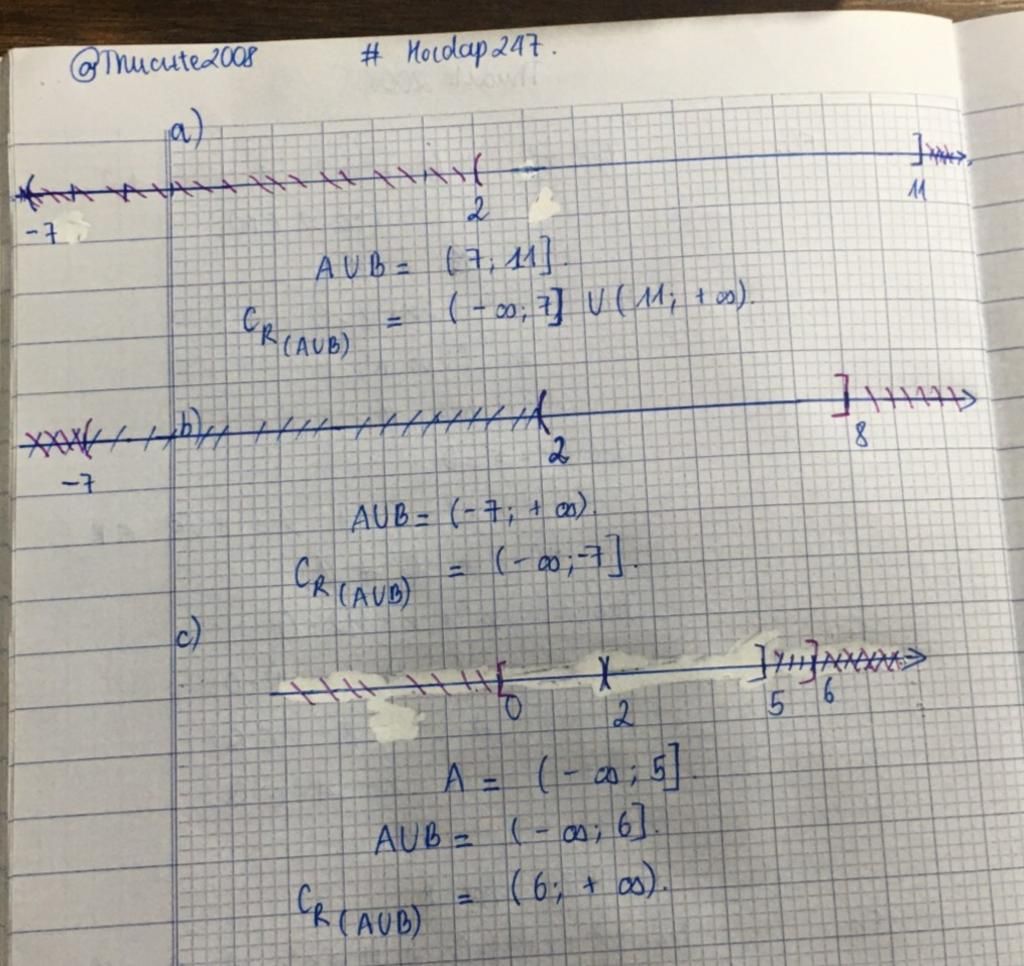 @Thucute2008 # Hoidap247.
a)
-7 2 11
A∪B = (7; 11].
C_R(A∪B) = (-∞; 7] ∪ (11; +∞).
b)
-7 2 8
A∪B = (-7; +∞).
C_R(A∪B) = (-∞; -7].
c)
0 2 5 6
A = (-∞; 5].
A∪B = (-∞; 6].
C_R(A∪B) = (6; +∞).